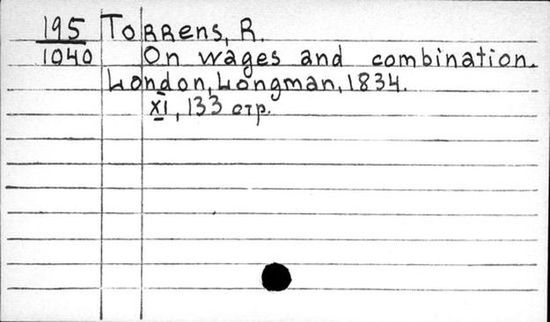 195 Torrens, R.
1040 On wages and combination.
London, Longman, 1834.
XI, 133 стр.